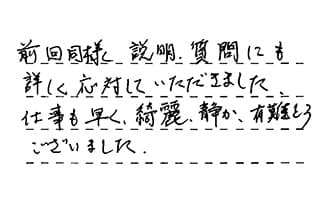 前回同様、説明、質問にも
詳しく応対していただきました、
仕事も早く、綺麗、静か、有難とう
ございました.